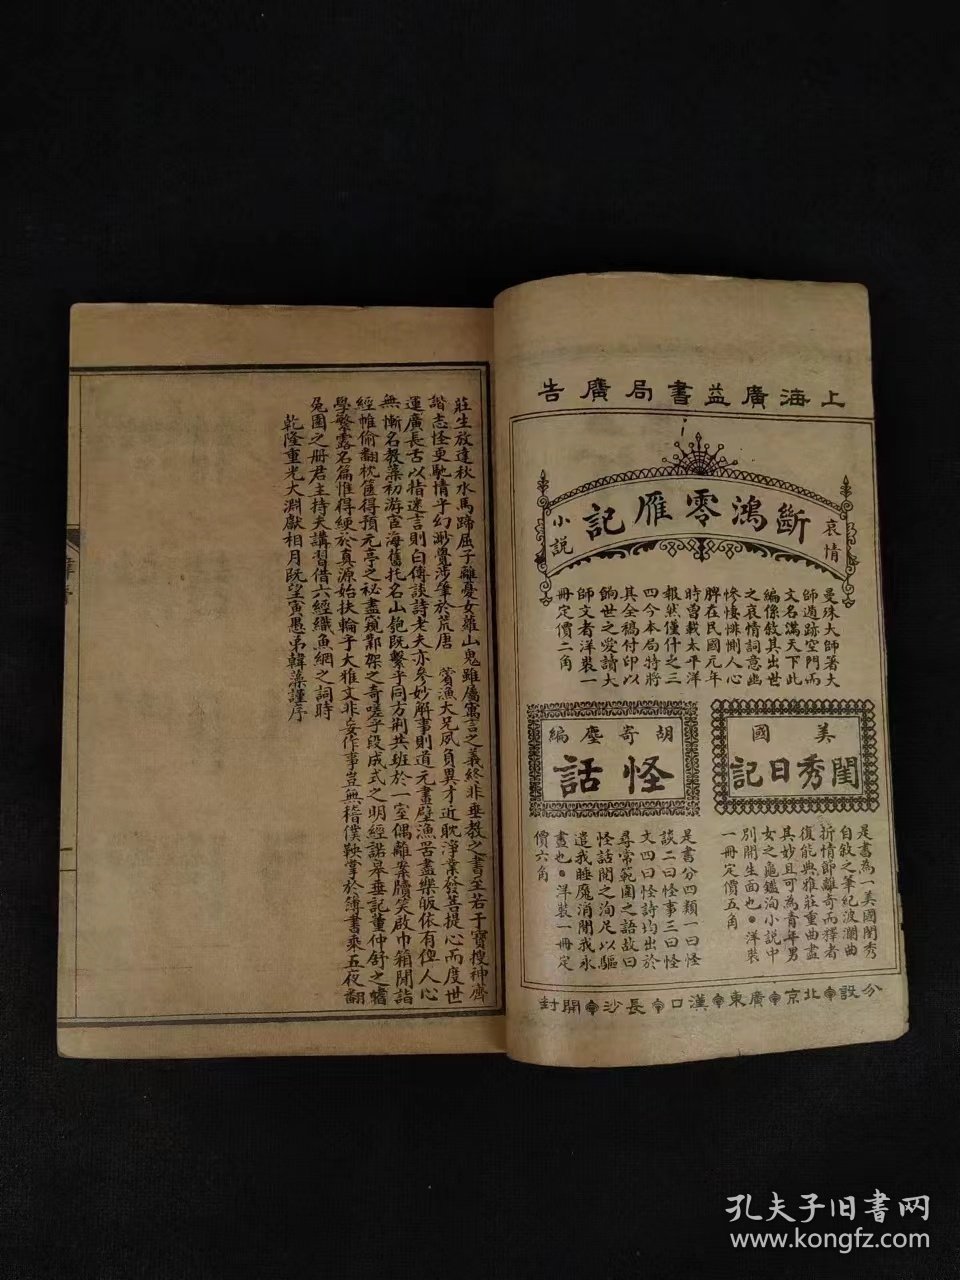 上海廣益書局廣告
哀情
小說
斷鴻零雁記
曼珠大師著大
師遁跡空門而
文名滿天下此
編係敘其出世
之哀情詞意幽
慘悽悱惻人心
脾在民國元年
時曾載太平洋
報然僅什之三
四今本局特將
其全稿付印以
餉世之愛讀大
師文者洋裝一
冊定價二角
美國
閨秀日記
胡寄塵編
怪話
是書為一美國閨秀
自敘之筆紀波瀾曲
折情節離奇而釋者
復能典雅莊重曲盡
其妙且可為青年男
女之龜鑑洵小說中
別開生面也洋裝
一冊定價五角
是書分四類一曰怪
談二曰怪事三曰怪
文四曰怪詩均出於
尋常範圍之語故曰
怪話閱之洵足以驅
遣我睡魔消閒我永
晝也洋裝一冊定
價六角
分設北京廣東漢口長沙開封
莊生放達秋水馬蹄屈子離憂女蘿山鬼雖屬寓言之義終非垂教之書至若干寶搜神齊
諧志怪更馳情乎幻渺覺涉筆於荒唐 霱漁大兄夙負異才近耽淨業發菩提心而度世
運廣長舌以指迷言則白傳談詩老夫亦參妙解事則道元畫壁漁罟盡樂皈依有俾人心
無慚名教藻初游宦海舊托名山匏既繫乎同方荊共班於一室偶離案牘笑啟巾箱閒詣
經帷偷翻枕篋得預元亭之秘盡窺鄴架之奇嗟乎段成式之明經諾皋垂記董仲舒之嗜
學繁露名篇惟得綆於真源始扶輪乎大雅文非妄作事豈無稽僕鞅掌於簿書乘五夜翻
兔園之冊君主持夫講習借六經織魚網之詞時
乾隆重光大淵獻相月既望寅愚弟韓藻謹序
孔夫子旧書网
www.kongfz.com